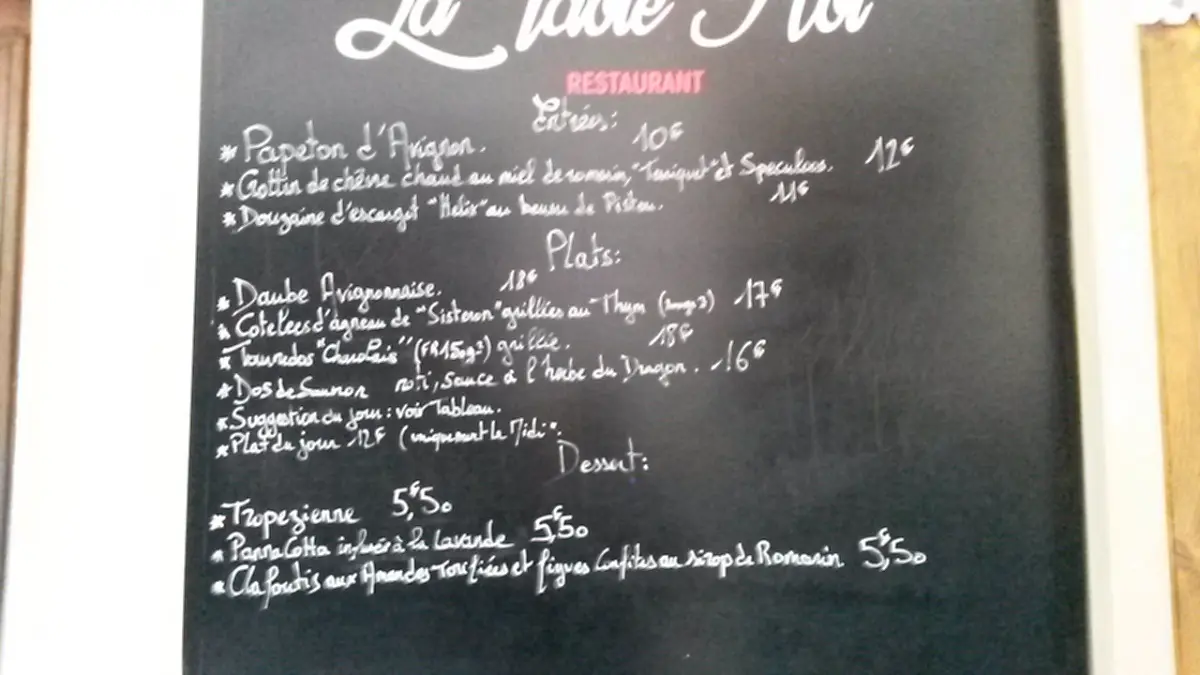 La Table
RESTAURANT
Entrées:
* Papeton d'Avignon. 10€
* Crottin de chêvre chaud au miel de romarin, "Taniguet" et Speculoos. 12€
* Douzaine d'escargot "Helix" au beurre de Pistou. 11€
Plats:
* Daube Avignonnaise. 18€
* Cotelees d'agneau de "Sisteron" grillées au Thym 17€
* Tournedos "Charolais" (FR 150g) grillée. 18€
* Dos de Saumon roti, sauce à l'herbe du Dragon. 16€
* Suggestion du jour: voir Tableau.
* Plat du jour 12€ (uniquement le Midi".
Dessert:
* Tropezienne 5,€50
* Panna Cotta infusée à la Lavande 5,€50
* Clafoutis aux Amandes Torifiées et figues Confites au sirop de Romarin 5,€50